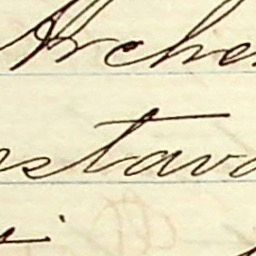 Arche
stava